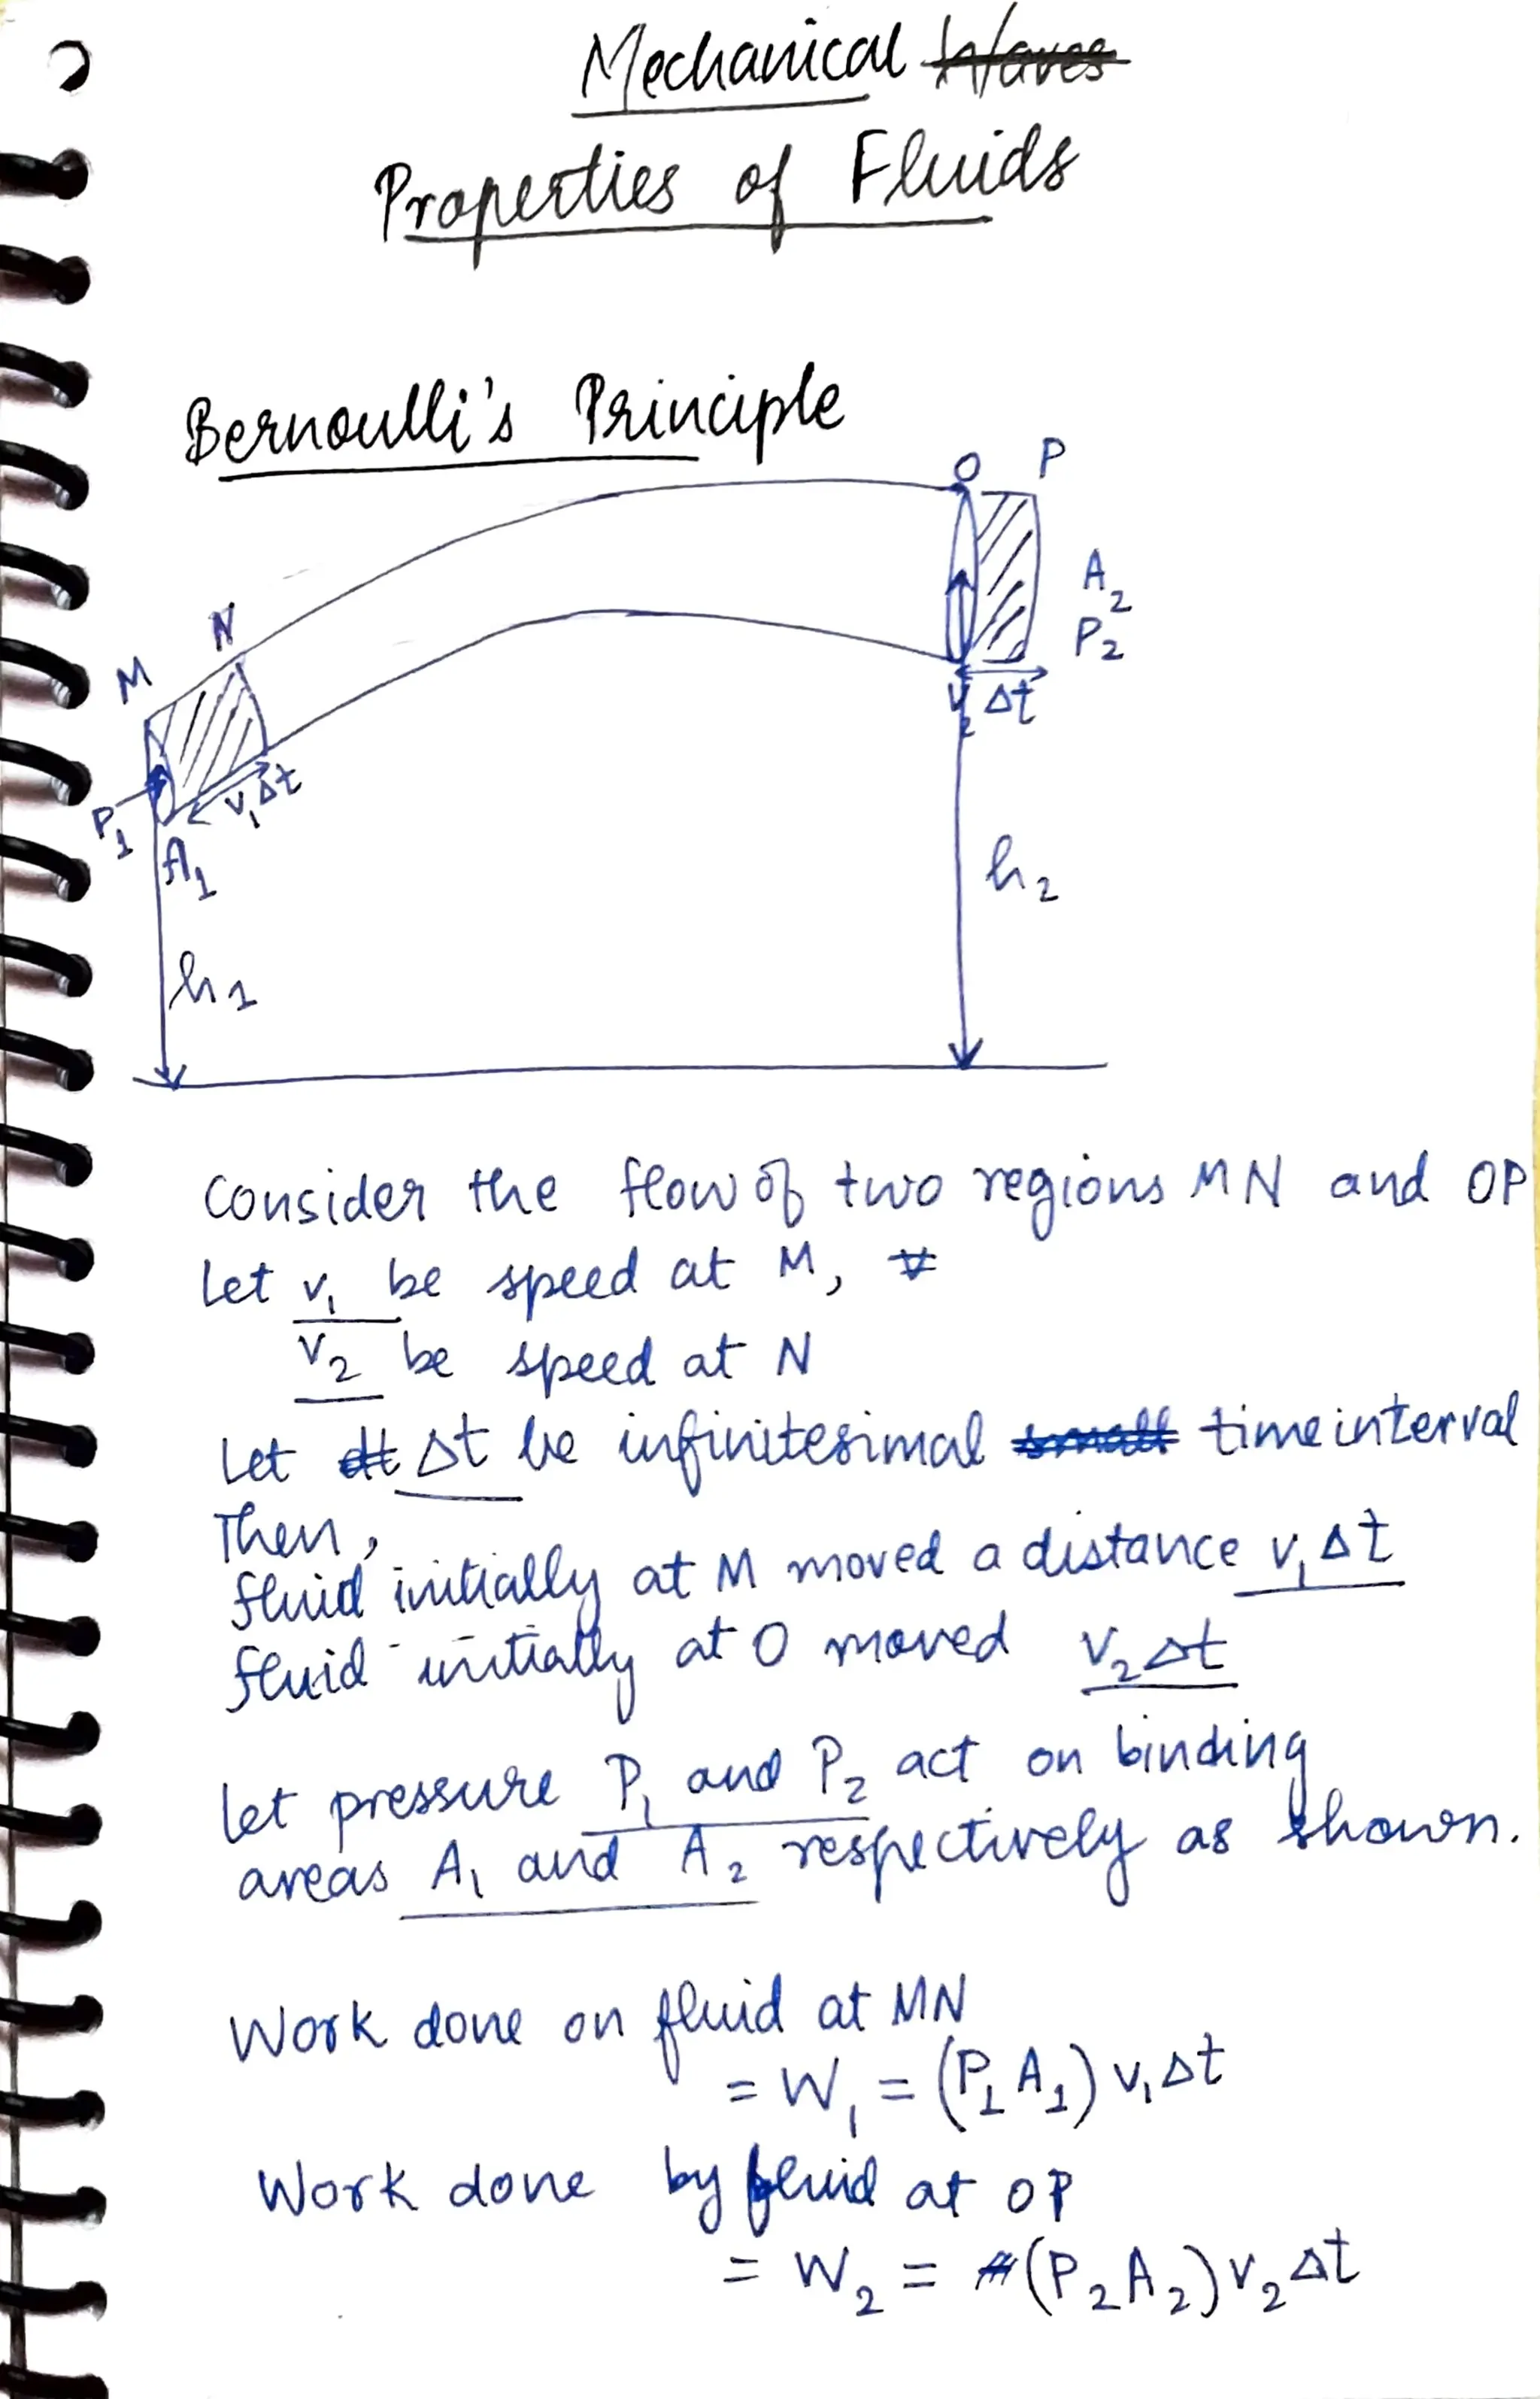 Mechanical Waves
Properties of Fluids
Bernoulli's Principle
O P
A2
P2
N
M
V2 Δt
v1 Δt
P1
A1
h2
h1
Consider the flow of two regions MN and OP
Let v1 be speed at M, v
v2 be speed at N
Let dt Δt be infinitesimal small time interval
Then,
fluid initially at M moved a distance v1 Δt
fluid initially at O moved v2 Δt
Let pressure P1 and P2 act on binding
areas A1 and A2 respectively as shown.
Work done on fluid at MN
= W1 = (P1 A1) v1 Δt
Work done by fluid at OP
= W2 = (P2 A2) v2 Δt